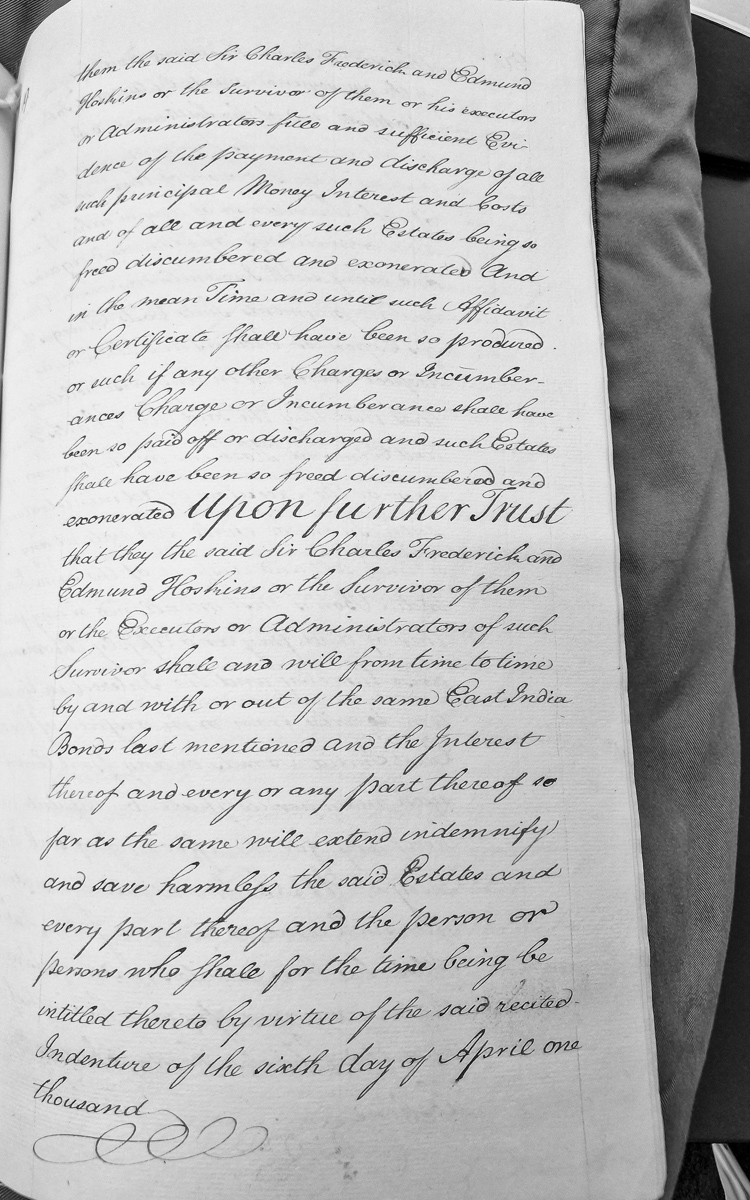 them the said Sir Charles Frederick and Edmund
Hoskins or the Survivor of them or his executors
or Administrators full and sufficient Evi-
dence of the payment and discharge of all
such principal Money Interest and Costs
and of all and every such Estates being so
freed discumbered and exonerated And
in the mean Time and until such Affidavit
or Certificate shall have been so produced.
or such if any other Charges or Incumber-
ances Charge or Incumberance shall have
been so paid off or discharged and such Estates
shall have been so freed discumbered and
exonerated Upon further Trust
that they the said Sir Charles Frederick and
Edmund Hoskins or the Survivor of them
or the Executors or Administrators of such
Survivor shall and will from time to time
by and with or out of the same East India
Bonds last mentioned and the Interest
thereof and every or any part thereof so
far as the same will extend indemnify
and save harmless the said Estates and
every part thereof and the person or
persons who shall for the time being be
intitled thereto by virtue of the said recited
Indenture of the sixth day of April one
thousand